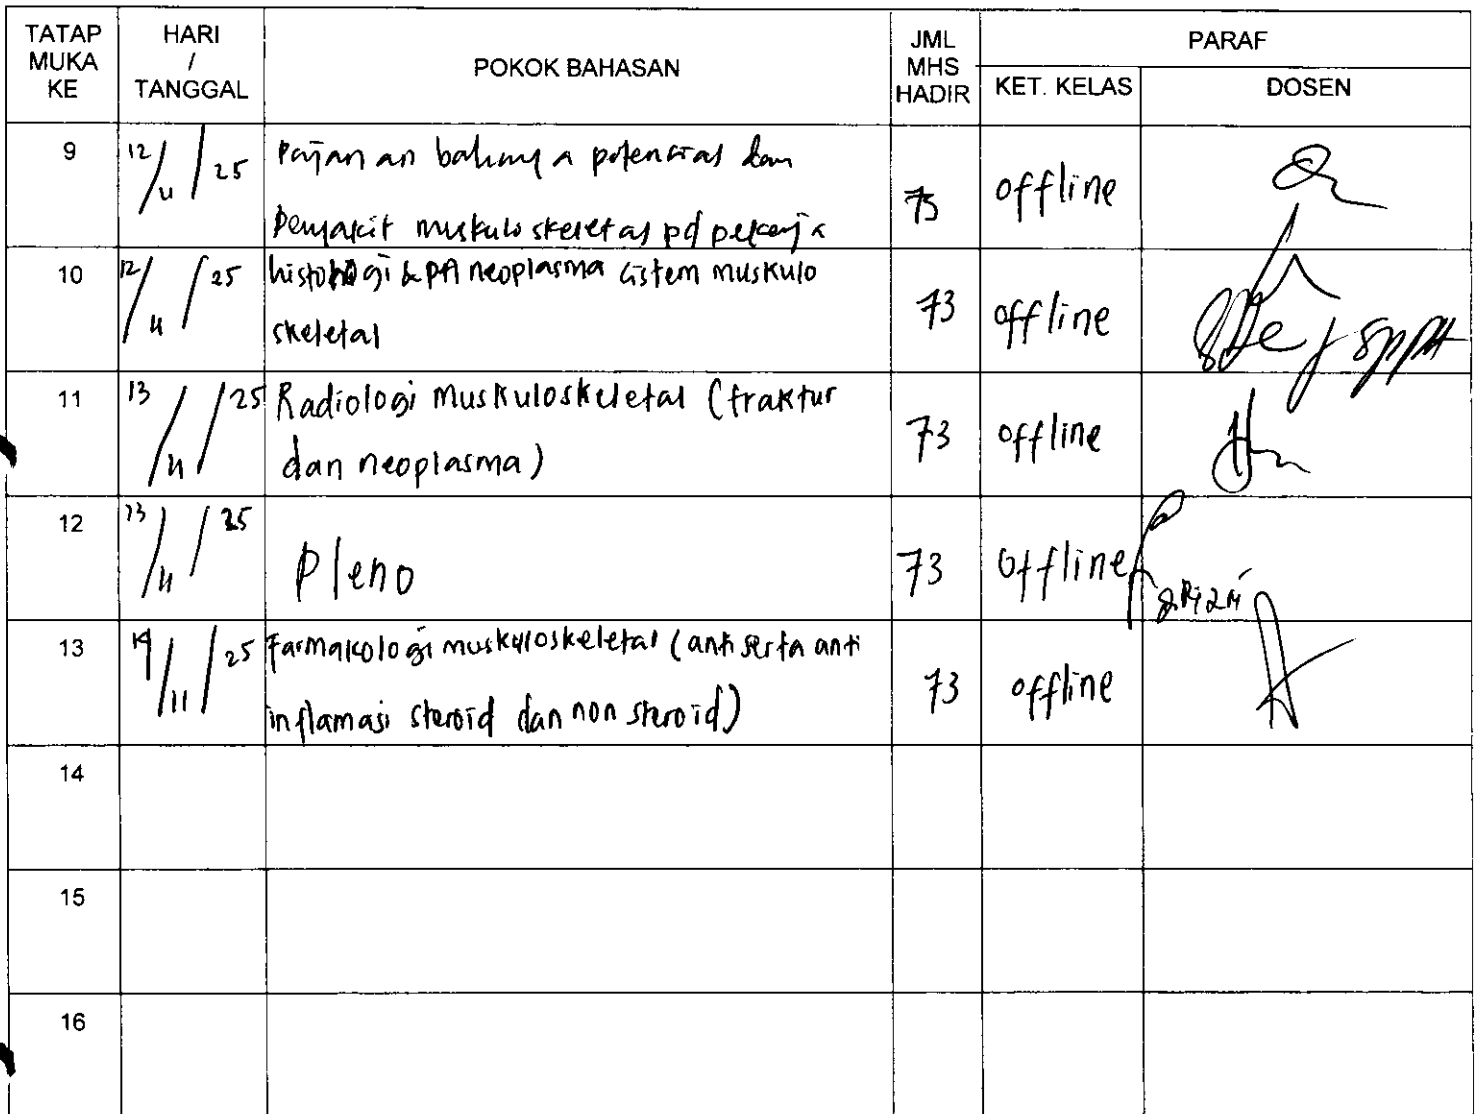 TATAP MUKA KE
HARI / TANGGAL
POKOK BAHASAN
JML MHS HADIR
PARAF
KET. KELAS
DOSEN
9
12/11/25
Pajanan bahaya potensial dan
Penyakit muskuloskeletal pd pekerja
offline
10
12/11/25
histologi & PA neoplasma sistem muskulo
skeletal
73
offline
11
13/11/25
Radiologi Muskuloskeletal (fraktur
dan neoplasma)
73
offline
12
13/11/25
Pleno
73
offline
13
14/11/25
Farmakologi muskuloskeletal (anti serta anti
inflamasi steroid dan non steroid)
73
offline
14
15
16